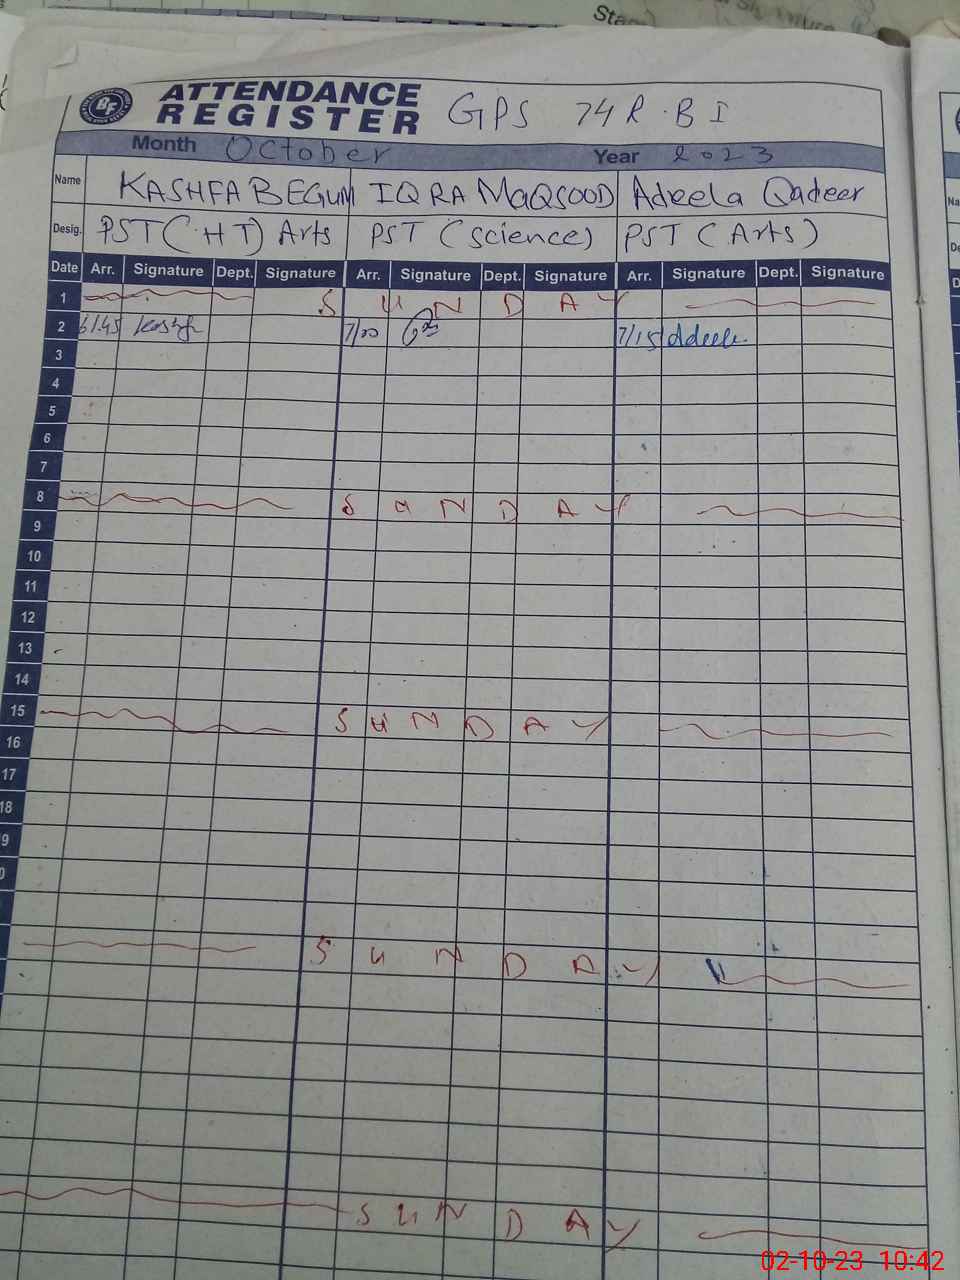 Stam
ATTENDANCE
REGISTER GPS 74 R.B I
Month October Year 2023
Name KASHFA BEGUM IQRA MAQSOOD Adeela Qadeer
Desig. PST (HT) Arts PST (Science) PST (Arts)
Date Arr. Signature Dept. Signature Arr. Signature Dept. Signature Arr. Signature Dept. Signature
1 SUNDAY
2 6/45 Kashf 7/20 7/15 Adeela
3
4
5
6
7
8 SUNDAY
9
10
11
12
13
14
15 SUNDAY
16
17
18
9
0
SUNDAY
SUNDAY
02-10-23 10:42